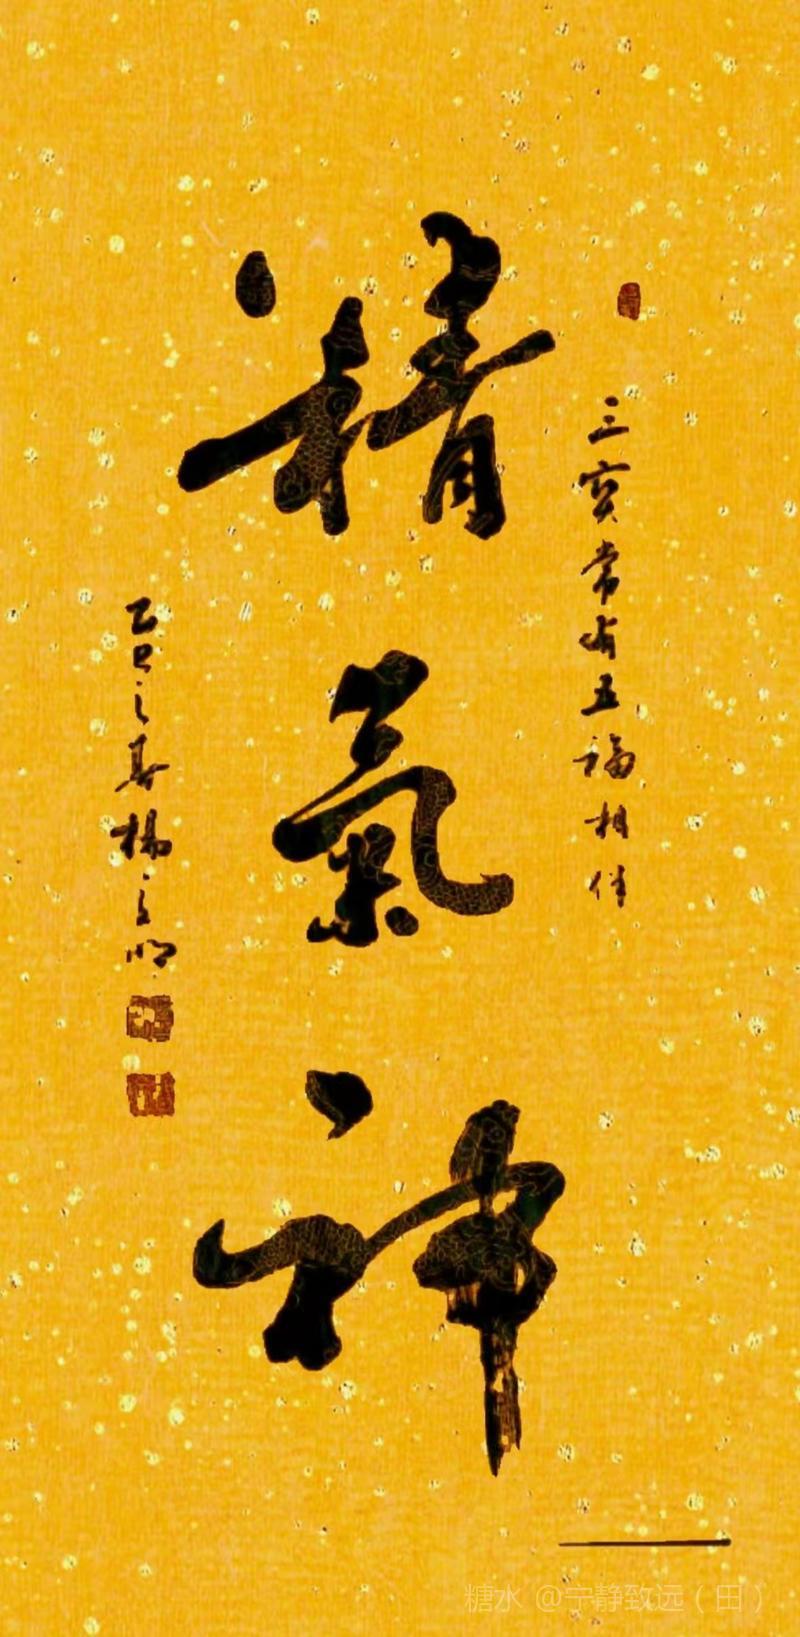 三寶常有五福相伴
精氣神
乙巳之春楊立明
糖水 @宁静致远（田）